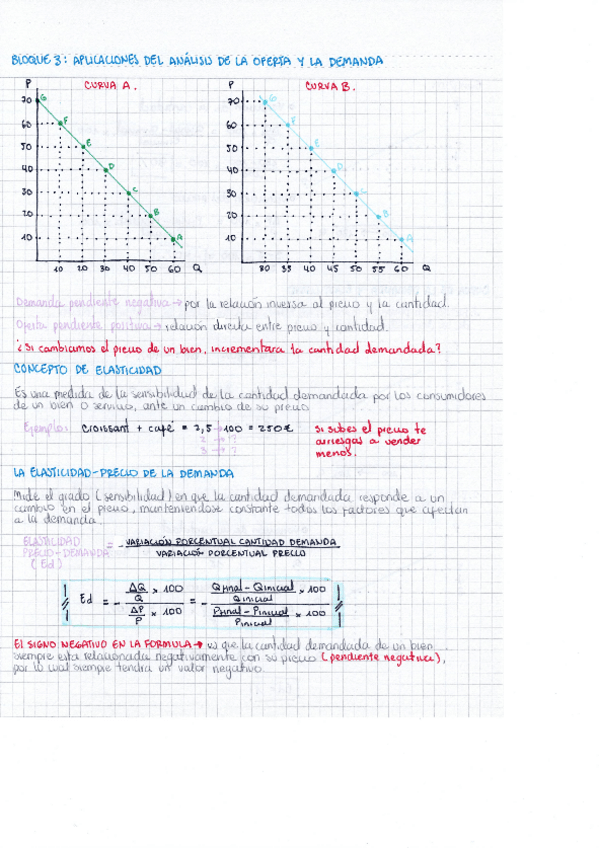 BLOQUE 3: APLICACIONES DEL ANÁLISIS DE LA OFERTA Y LA DEMANDA
P CURVA A.
70 G
60 F
50 E
40 D
30 C
20 B
10 A
10 20 30 40 50 60 Q
P CURVA B.
70 G
60 F
50 E
40 D
30 C
20 B
10 A
30 35 40 45 50 55 60 Q
Demanda pendiente negativa → por la relación inversa al precio y la cantidad.
Oferta pendiente positiva → relación directa entre precio y cantidad.
¿Si cambiamos el precio de un bien, incrementara la cantidad demandada?
CONCEPTO DE ELASTICIDAD
Es una medida de la sensibilidad de la cantidad demandada por los consumidores
de un bien o servicio, ante un cambio de su precio
Ejemplo: Croissant + café = 2,5 → 100 = 250€
2 → ?
3 → ?
si subes el precio te
arriesgas a vender
menos.
LA ELASTICIDAD-PRECIO DE LA DEMANDA
Mide el grado (sensibilidad) en que la cantidad demandada responde a un
cambio en el precio, manteniendose constante todos los factores que afectan
a la demanda.
ELASTICIDAD
PRECIO-DEMANDA
(Ed)
= - VARIACIÓN PORCENTUAL CANTIDAD DEMANDA
VARIACIÓN PORCENTUAL PRECIO
Ed = - ΔQ/Q x 100 / ΔP/P x 100 = - Qfinal - Qinicial/Qinicial x 100 / Pfinal - Pinicial/Pinicial x 100
El SIGNO NEGATIVO EN LA FORMULA → es que la cantidad demandada de un bien
siempre esta relacionada negativamente con su precio (pendiente negativa),
por lo cual siempre tendra un valor negativo.